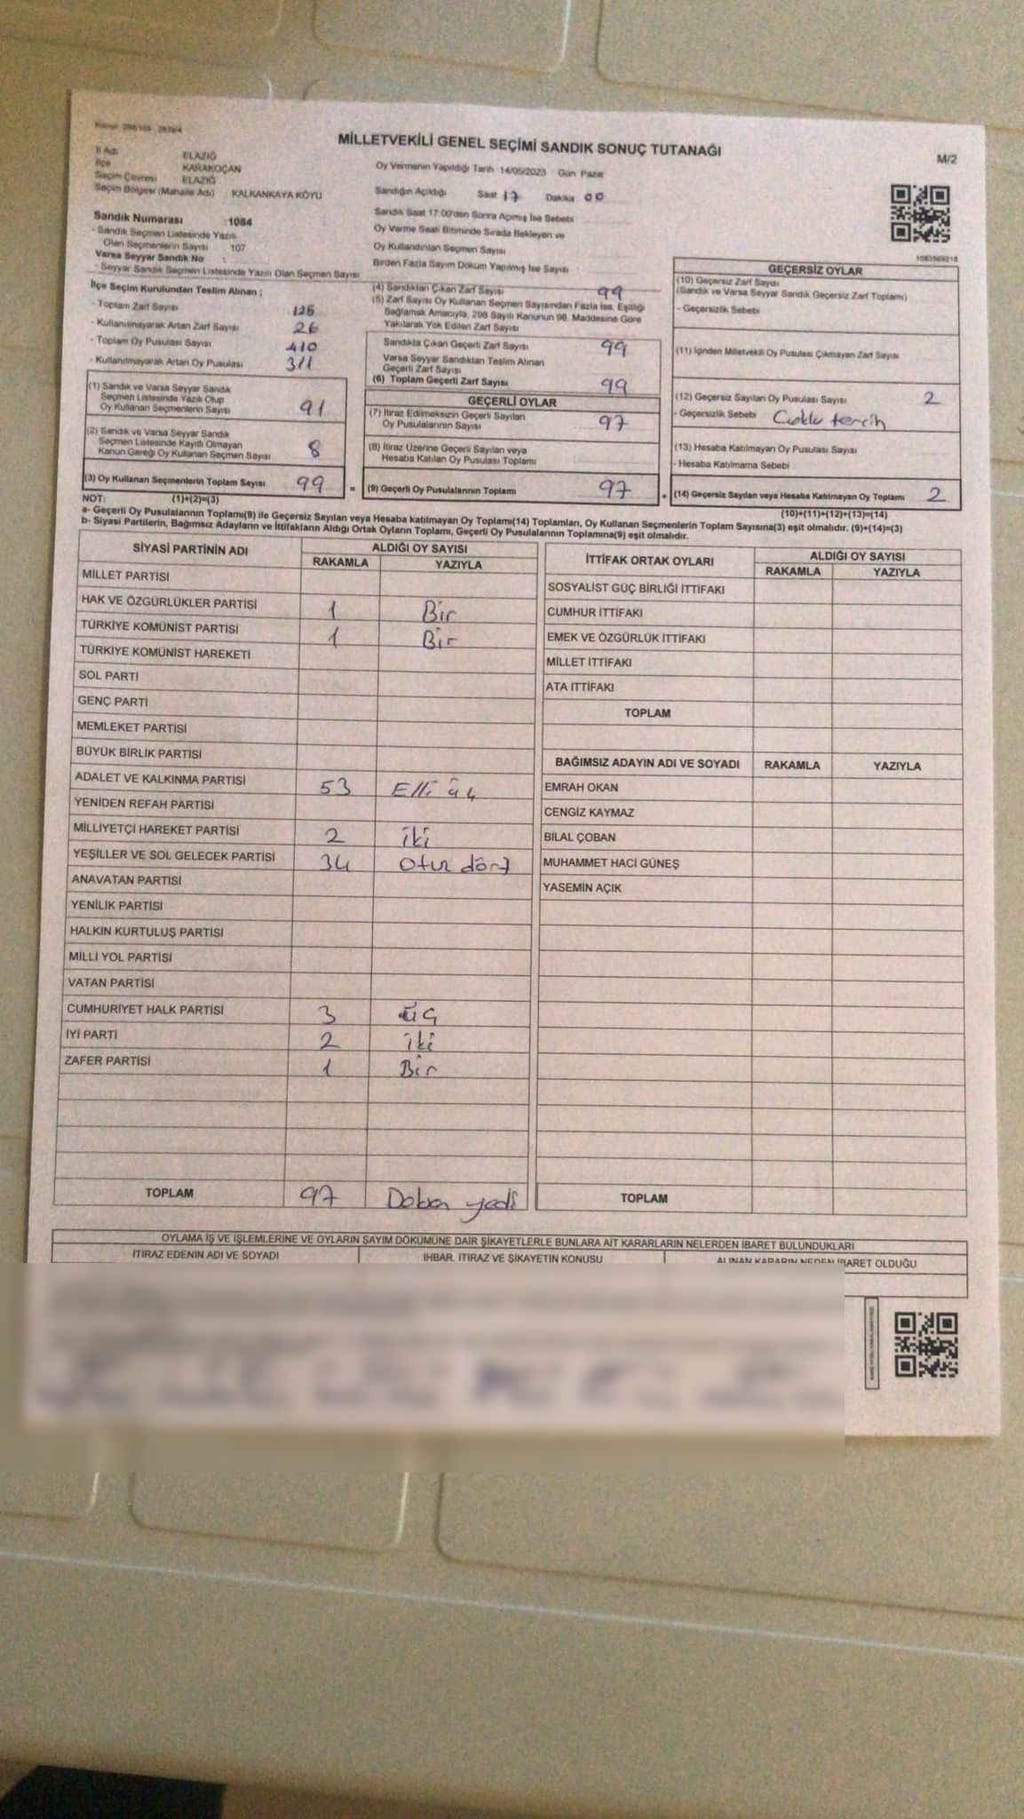 MİLLETVEKİLİ GENEL SEÇİMİ SANDIK SONUÇ TUTANAĞI
M/2
İl Adı ELAZIĞ
İlçe KARAKOÇAN
Seçim Çevresi ELAZIĞ
Seçim Bölgesi (Mahalle Adı) KALKANKAYA KÖYÜ
Oy Vermenin Yapıldığı Tarih 14/05/2023 Gün Pazar
Sandığın Açıldığı Saat 17 Dakika 00
Sandık Saat 17:00'den Sonra Açılmış İse Sebebi
Oy Verme Saati Bitiminde Sırada Bekleyen ve
Oy Kullandırılan Seçmen Sayısı
Birden Fazla Sayım Döküm Yapılmış İse Sayısı
Sandık Numarası :1084
- Sandık Seçmen Listesinde Yazılı
Olan Seçmenlerin Sayısı 107
Varsa Seyyar Sandık No :
- Seyyar Sandık Seçmen Listesinde Yazılı Olan Seçmen Sayısı
İlçe Seçim Kurulundan Teslim Alınan ;
- Toplam Zarf Sayısı 125
- Kullanılmayarak Artan Zarf Sayısı 26
- Toplam Oy Pusulası Sayısı 410
- Kullanılmayarak Artan Oy Pusulası 311
(1) Sandık ve Varsa Seyyar Sandık
Seçmen Listesinde Yazılı Olup
Oy Kullanan Seçmenlerin Sayısı 91
(2) Sandık ve Varsa Seyyar Sandık
Seçmen Listesinde Kayıtlı Olmayan
Kanun Gereği Oy Kullanan Seçmen Sayısı 8
(3) Oy Kullanan Seçmenlerin Toplam Sayısı 99
(4) Sandıktan Çıkan Zarf Sayısı 99
(5) Zarf Sayısı Oy Kullanan Seçmen Sayısından Fazla İse, Eşitliği
Sağlamak Amacıyla, 298 Sayılı Kanunun 98. Maddesine Göre
Yakılarak Yok Edilen Zarf Sayısı
Sandıkta Çıkan Geçerli Zarf Sayısı 99
Varsa Seyyar Sandıktan Teslim Alınan
Geçerli Zarf Sayısı
(6) Toplam Geçerli Zarf Sayısı 99
GEÇERLİ OYLAR
(7) İtiraz Edilmeksizin Geçerli Sayılan
Oy Pusulalarının Sayısı 97
(8) İtiraz Üzerine Geçerli Sayılan veya
Hesaba Katılan Oy Pusulası Toplamı
= (9) Geçerli Oy Pusulalarının Toplamı 97
GEÇERSİZ OYLAR
(10) Geçersiz Zarf Sayısı
(Sandık ve Varsa Seyyar Sandık Geçersiz Zarf Toplamı)
- Geçersizlik Sebebi
(11) İçinden Milletvekili Oy Pusulası Çıkmayan Zarf Sayısı
(12) Geçersiz Sayılan Oy Pusulası Sayısı 2
- Geçersizlik Sebebi Çoklu tercih
(13) Hesaba Katılmayan Oy Pusulası Sayısı
- Hesaba Katılmama Sebebi
+ (14) Geçersiz Sayılan veya Hesaba Katılmayan Oy Toplamı 2
NOT: (1)+(2)=(3)
(10)+(11)+(12)+(13)=(14)
a- Geçerli Oy Pusulalarının Toplamı(9) ile Geçersiz Sayılan veya Hesaba katılmayan Oy Toplamı(14) Toplamları, Oy Kullanan Seçmenlerin Toplam Sayısına(3) eşit olmalıdır. (9)+(14)=(3)
b- Siyasi Partilerin, Bağımsız Adayların ve İttifakların Aldığı Ortak Oyların Toplamı, Geçerli Oy Pusulalarının Toplamına(9) eşit olmalıdır.
SİYASİ PARTİNİN ADI ALDIĞI OY SAYISI
RAKAMLA YAZIYLA
MİLLET PARTİSİ
HAK VE ÖZGÜRLÜKLER PARTİSİ 1 Bir
TÜRKİYE KOMÜNİST PARTİSİ 1 Bir
TÜRKİYE KOMÜNİST HAREKETİ
SOL PARTİ
GENÇ PARTİ
MEMLEKET PARTİSİ
BÜYÜK BİRLİK PARTİSİ
ADALET VE KALKINMA PARTİSİ 53 Elli üç
YENİDEN REFAH PARTİSİ
MİLLİYETÇİ HAREKET PARTİSİ 2 iki
YEŞİLLER VE SOL GELECEK PARTİSİ 34 Otuz dört
ANAVATAN PARTİSİ
YENİLİK PARTİSİ
HALKIN KURTULUŞ PARTİSİ
MİLLİ YOL PARTİSİ
VATAN PARTİSİ
CUMHURİYET HALK PARTİSİ 3 üç
İYİ PARTİ 2 iki
ZAFER PARTİSİ 1 Bir
TOPLAM 97 Doksan yedi
İTTİFAK ORTAK OYLARI ALDIĞI OY SAYISI
RAKAMLA YAZIYLA
SOSYALİST GÜÇ BİRLİĞİ İTTİFAKI
CUMHUR İTTİFAKI
EMEK VE ÖZGÜRLÜK İTTİFAKI
MİLLET İTTİFAKI
ATA İTTİFAKI
TOPLAM
BAĞIMSIZ ADAYIN ADI VE SOYADI RAKAMLA YAZIYLA
EMRAH OKAN
CENGİZ KAYMAZ
BİLAL ÇOBAN
MUHAMMET HACİ GÜNEŞ
YASEMİN AÇIK
TOPLAM
OYLAMA İŞ VE İŞLEMLERİNE VE OYLARIN SAYIM DÖKÜMÜNE DAİR ŞİKAYETLERLE BUNLARA AİT KARARLARIN NELERDEN İBARET BULUNDUKLARI
İTİRAZ EDENİN ADI VE SOYADI İHBAR, İTİRAZ VE ŞİKAYETİN KONUSU ALINAN KARARIN NEDEN İBARET OLDUĞU